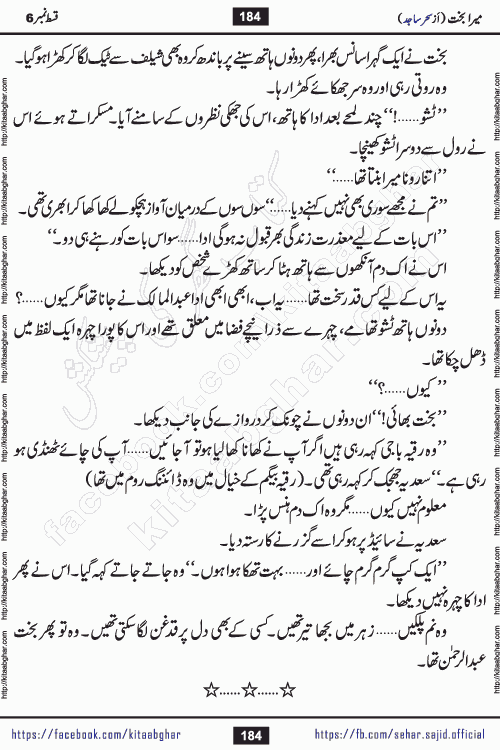 میرا بخت (از سحر ساجد)
184
قسط نمبر 6
بخت نے ایک گہرا سانس بھرا، پھر دونوں ہاتھ سینے پر باندھ کر وہ بھی شیلف سے ٹیک لگا کر کھڑا ہو گیا۔
وہ روتی رہی اور وہ سر جھکائے کھڑا رہا۔
’’ٹشو......!‘‘ چند لمحے بعد ادا کا ہاتھ، اس کی جھکی نظروں کے سامنے آیا۔ مسکراتے ہوئے اس
نے رول سے دوسرا ٹشو کھینچا۔
’’اتنا رونا میرا بنتا تھا......‘‘
’’تم نے مجھے سوری بھی نہیں کہنے دیا......‘‘ سوں سوں کے درمیان آواز ہچکولے کھا کھا کر ابھری تھی۔
’’اس بات کے لیے معذرت زندگی بھر قبول نہ ہو گی ادا...... سو اس بات کو رہنے ہی دو۔‘‘
اس نے اک دم آنکھوں سے ہاتھ ہٹا کر ساتھ کھڑے شخص کو دیکھا۔
یہ اس کے لیے کس قدر سخت تھا...... یہ اب، ابھی ابھی ادا عبدالمالک نے جانا تھا مگر کیوں......؟
دونوں ہاتھ ٹشو تھامے، چہرے سے ذرا نیچے فضا میں معلق تھے اور اس کا پورا چہرہ ایک لفظ میں
ڈھل چکا تھا۔
’’کیوں......؟‘‘
’’بخت بھائی!‘‘ ان دونوں نے چونک کر دروازے کی جانب دیکھا۔
’’وہ رقیہ باجی کہہ رہی ہیں اگر آپ نے کھانا کھا لیا ہو تو آ جائیں...... آپ کی چائے ٹھنڈی ہو
رہی ہے۔‘‘ سعدیہ جھجک کر کہہ رہی تھی۔ (رقیہ بیگم کے خیال میں وہ ڈائننگ روم میں تھا)
معلوم نہیں کیوں...... مگر وہ اک دم ہنس پڑا۔
سعدیہ نے سائیڈ پر ہو کر اسے گزرنے کا رستہ دیا۔
’’ایک کپ گرم گرم چائے اور...... بہت تھکا ہوا ہوں۔‘‘ وہ جاتے جاتے کہہ گیا۔ اس نے پھر
ادا کا چہرہ نہیں دیکھا۔
وہ نم پلکیں...... زہر میں بجھا تیر تھیں۔ کسی کے بھی دل پر قدغن لگا سکتی تھیں۔ وہ تو پھر بخت
عبدالرحمٰن تھا۔
☆......☆......☆
https://facebook.com/kitaabghar
184
https://fb.com/sehar.sajid.official
http://kitaabghar.com
facebook.com/kitaabghar
kitaabghar.com